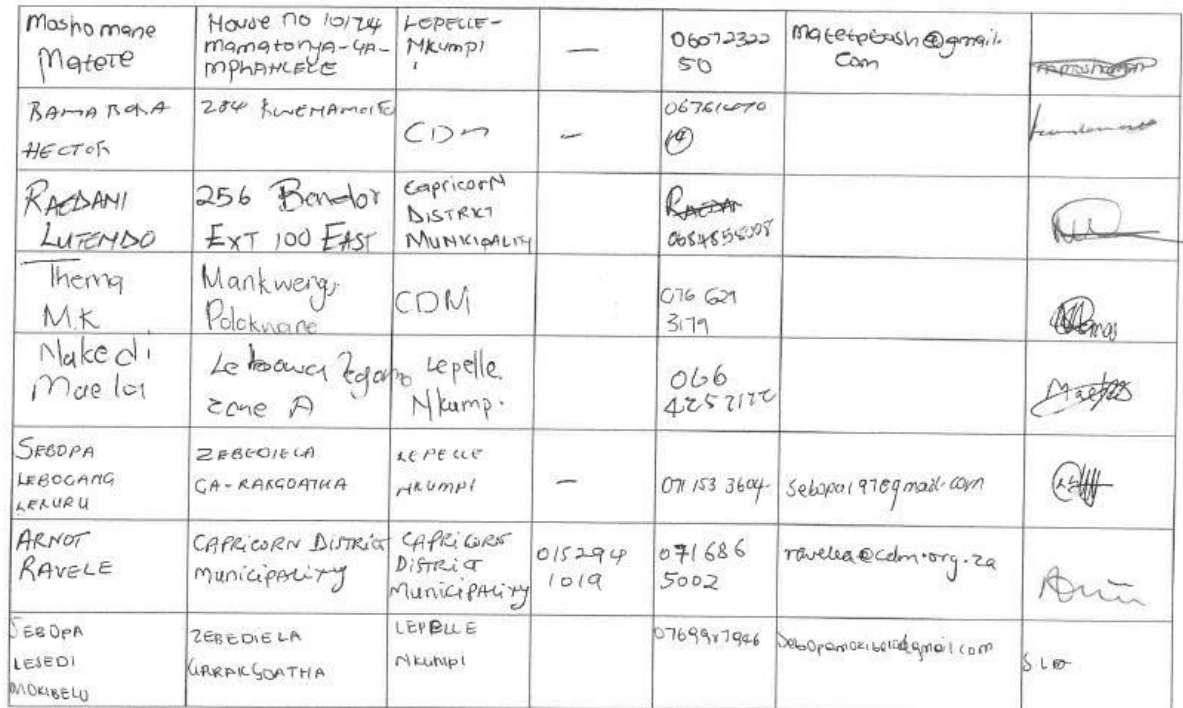 Moshomane Matete
House no 10/24 mamatonya-ga-mphahlele
Lepelle-Nkumpi
—
0607232250
matetptosh@gmail.com
Hector
284
CDM
—
Lutendo
256 Bendor Ext 100 East
Capricorn District Municipality
Thema M.K
Mankweng, Polokwane
CDM
076 629 3179
Nakedi Maela
zone A
Lepelle Nkumpi
066
Sebopa Lebogang Lekuru
Zebediela Ga-Rakgoatha
Lepelle Nkumpi
—
071 153 3604
sebopa197@gmail.com
Arnot Ravele
Capricorn District Municipality
Capricorn District Municipality
015294 1019
071686 5002
ravelea@cdm.org.za
Sebopa Lesedi Mokibelo
Zebediela Garakgoatha
Lepelle Nkumpi
0769987946